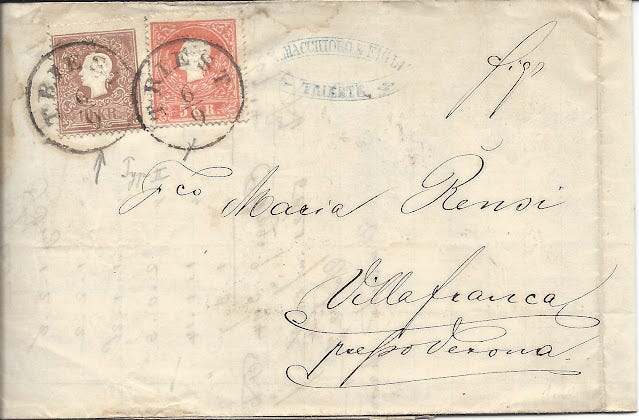 TRIEST
6
9
10 KR
TRIEST
6
9
5 KR
MACCHIORO & FIGLI
TRIESTE
Type II
fco Maria Rensi
Villafranca
presso Verona.